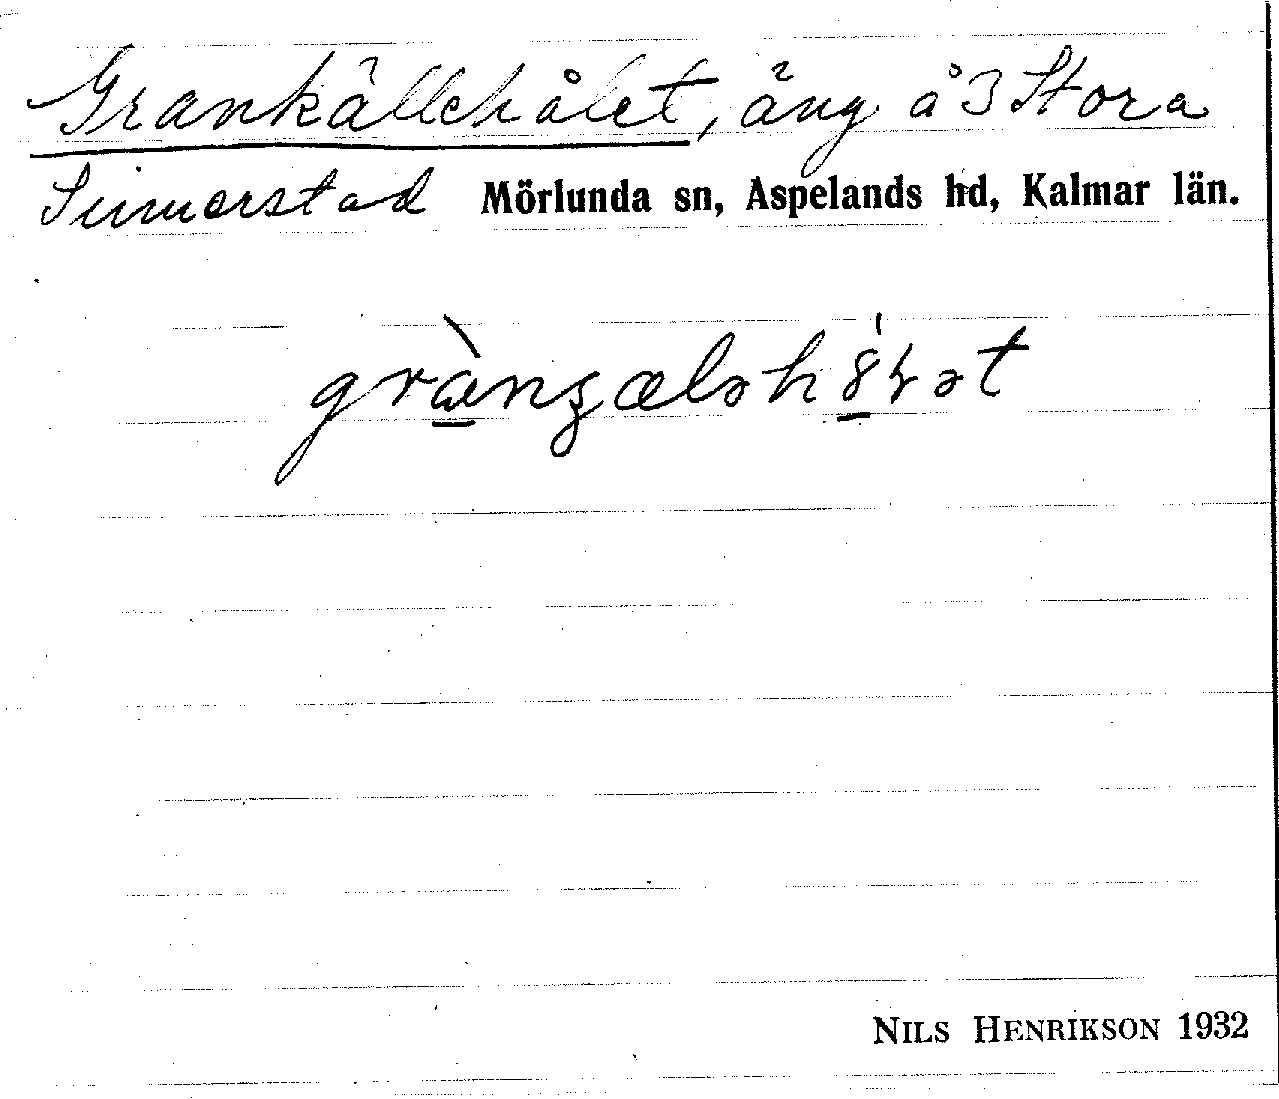 Grankällehålet, äng å 3 Stora
Simerstad Mörlunda sn, Aspelands hd, Kalmar län.
NILS HENRIKSON 1932